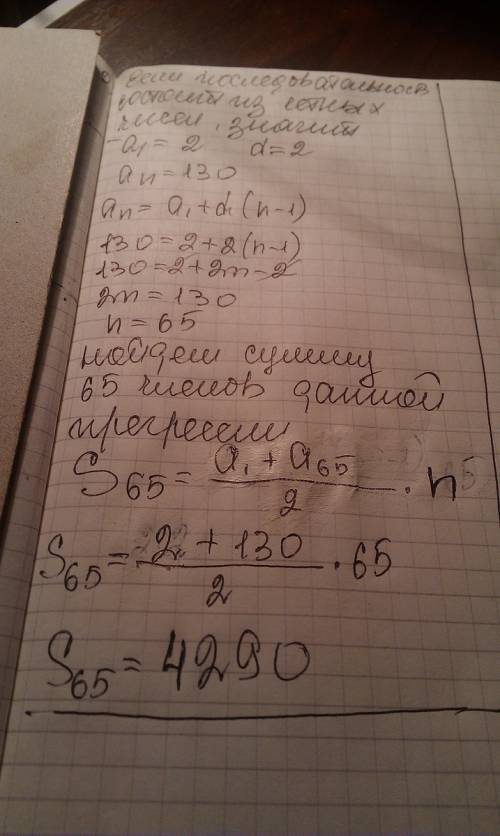 если последовательность
состоит из четных
чисел, значит
a₁ = 2 d = 2
aₙ = 130
aₙ = a₁ + d (n-1)
130 = 2 + 2 (n-1)
130 = 2 + 2n - 2
2n = 130
n = 65
найдем сумму
65 членов данной
прогрессии
S₆₅ = (a₁ + a₆₅)/2 · n
S₆₅ = (2 + 130)/2 · 65
S₆₅ = 4290